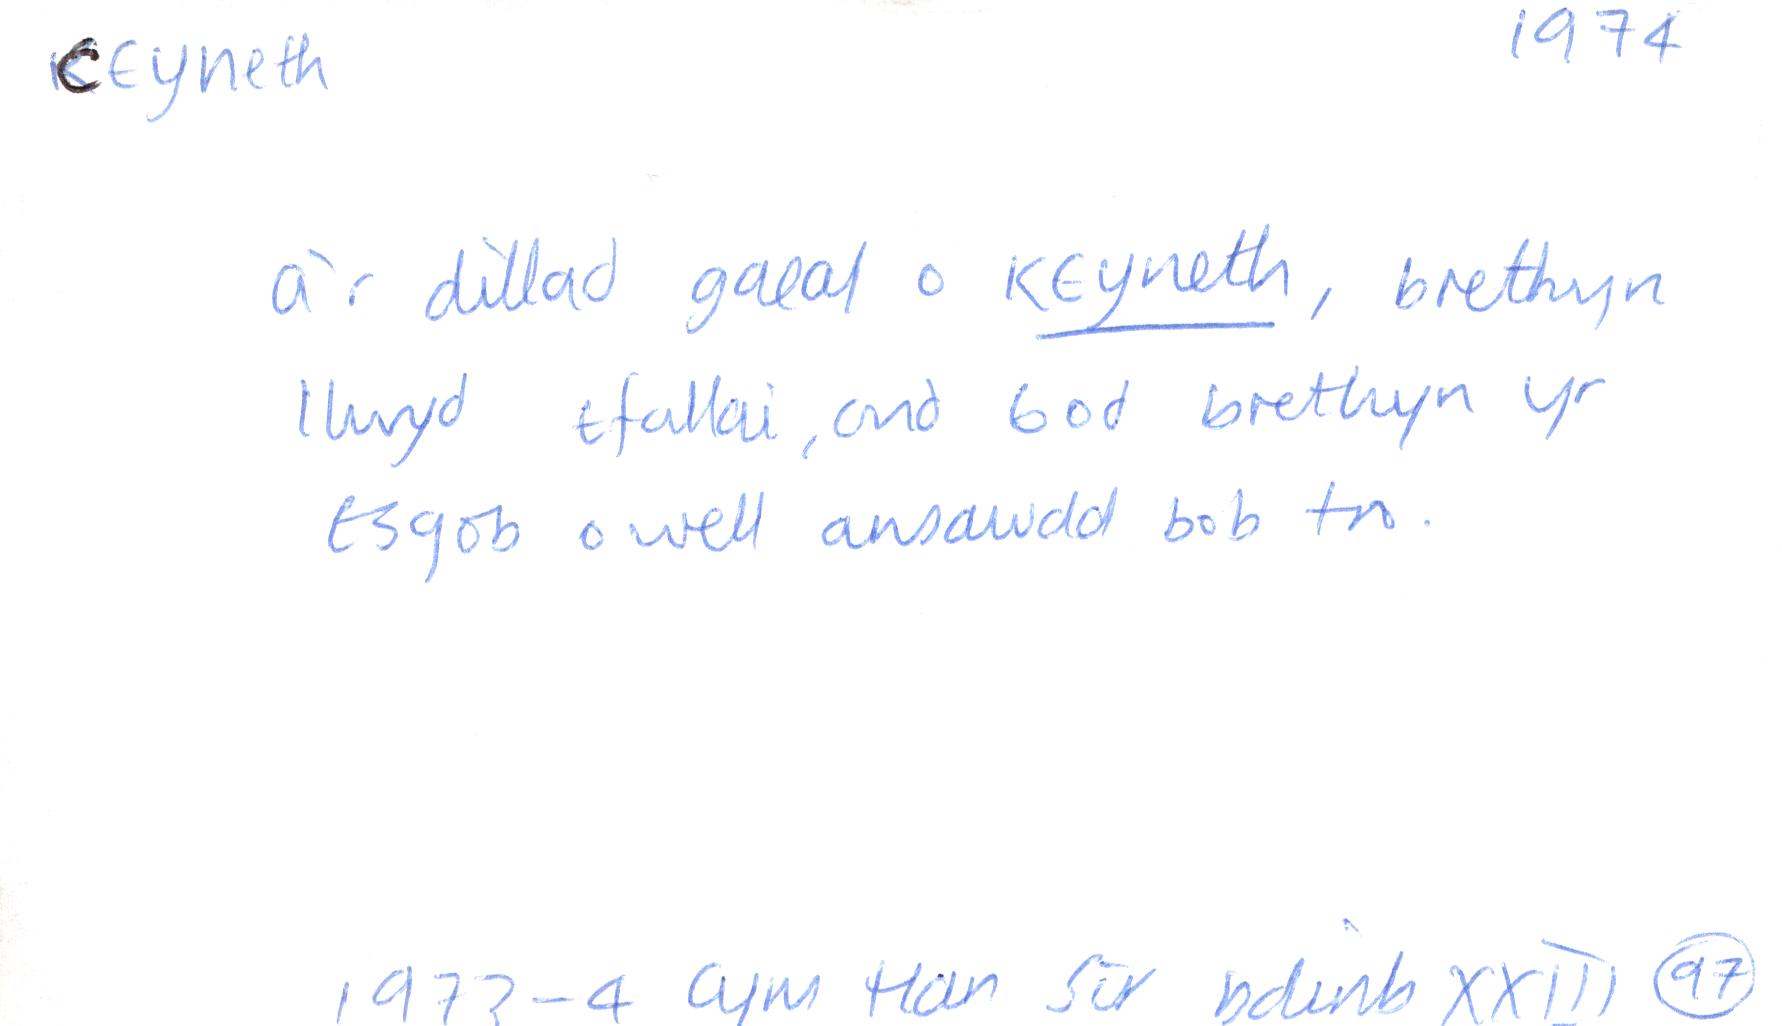 CEyneth 1974
a'r dillad gaeaf o KEyneth, brethyn
llwyd efallai, ond bod brethyn yr
Esgob o well ansawdd bob tro.
1973-4 Cym Han Sir Ddinb XXIII 97